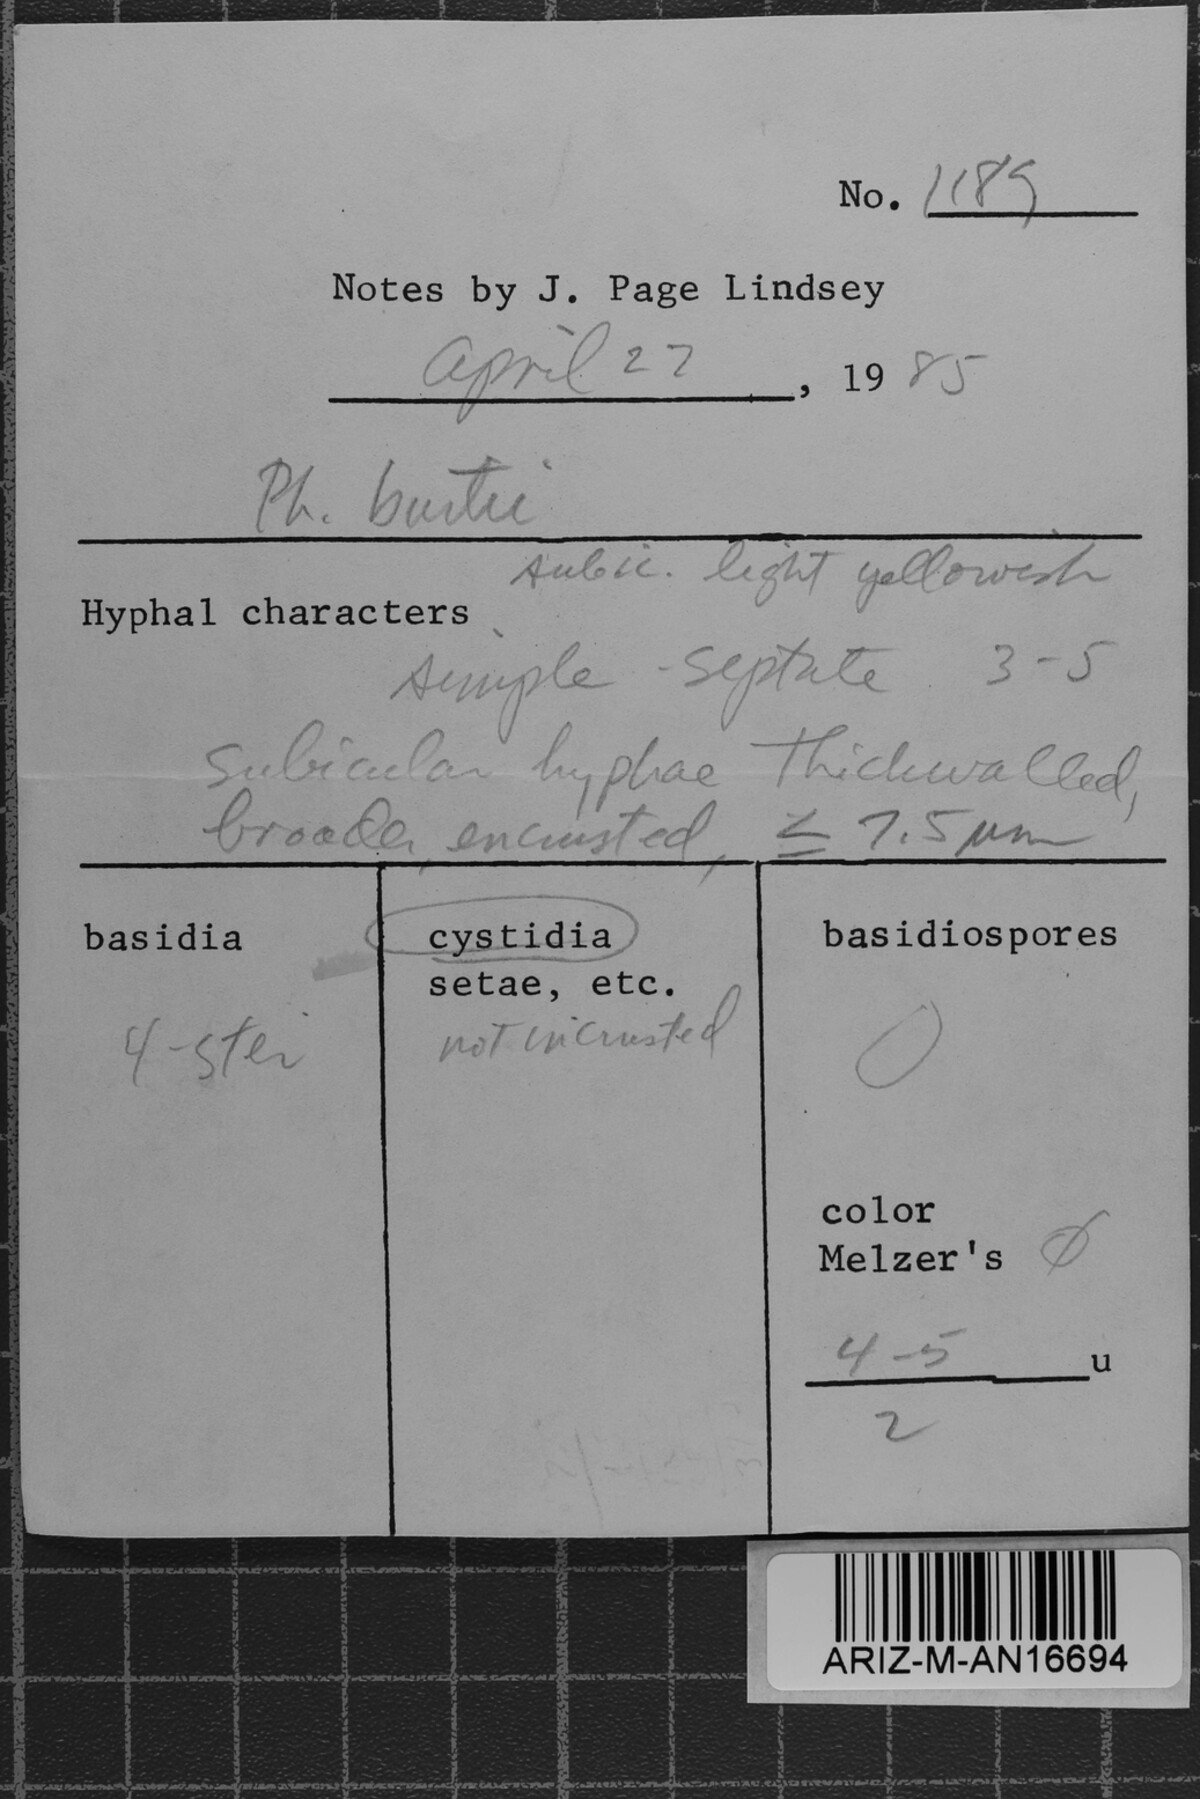 No. 1189
Notes by J. Page Lindsey
April 27, 1985
Ph. burtii
subic. light yellowish
Hyphal characters
simple-septate 3-5
subicular hyphae thickwalled,
broader, encrusted, ≤ 7.5 µm
basidia
cystidia
setae, etc.
basidiospores
4-ster
not incrusted
color
Melzer's ∅
4-5 u
2
ARIZ-M-AN16694